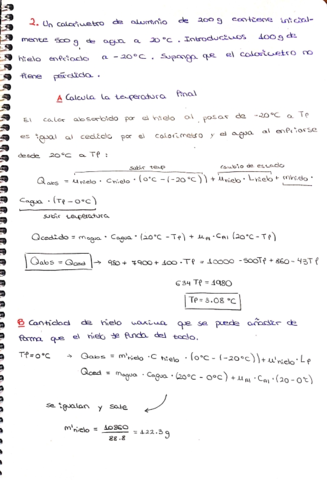 2. Un calorimetro de aluminio de 200g contiene inicial-
mente 500g de agua a 20°C. Introducimos 100g de
hielo enfriado a -20°C. Suponga que el calorimetro no
tiene pérdida.
A Calcula la temperatura final
El calor absorbido por el hielo al pasar de -20°C a Tf
es igual al cedido por el calorimetro y el agua al enfriarse
desde 20°C a Tf:
subir temp cambio de estado
Qabs = mhielo · Chielo · (0°C - (-20°C)) + mhielo · Lhielo + mhielo ·
Cagua · (Tf - 0°C)
subir temperatura
Qcedido = magua · Cagua · (20°C - Tf) + mAl · CAl (20°C - Tf)
Qabs = Qced → 980 + 7900 + 100 · Tf = 10000 - 500Tf + 860 - 43Tf
634 Tf = 1980
Tf = 3.08 °C
B Cantidad de hielo maxima que se puede añadir de
forma que el hielo se funda del todo.
Tf = 0°C → Qabs = m'hielo · C hielo · (0°C - (-20°C)) + m'hielo · Lf
Qced = magua · Cagua · (20°C - 0°C) + mAl · CAl · (20 - 0°C)
se igualan y sale
m'hielo = 10860 / 88.8 = 122.3 g